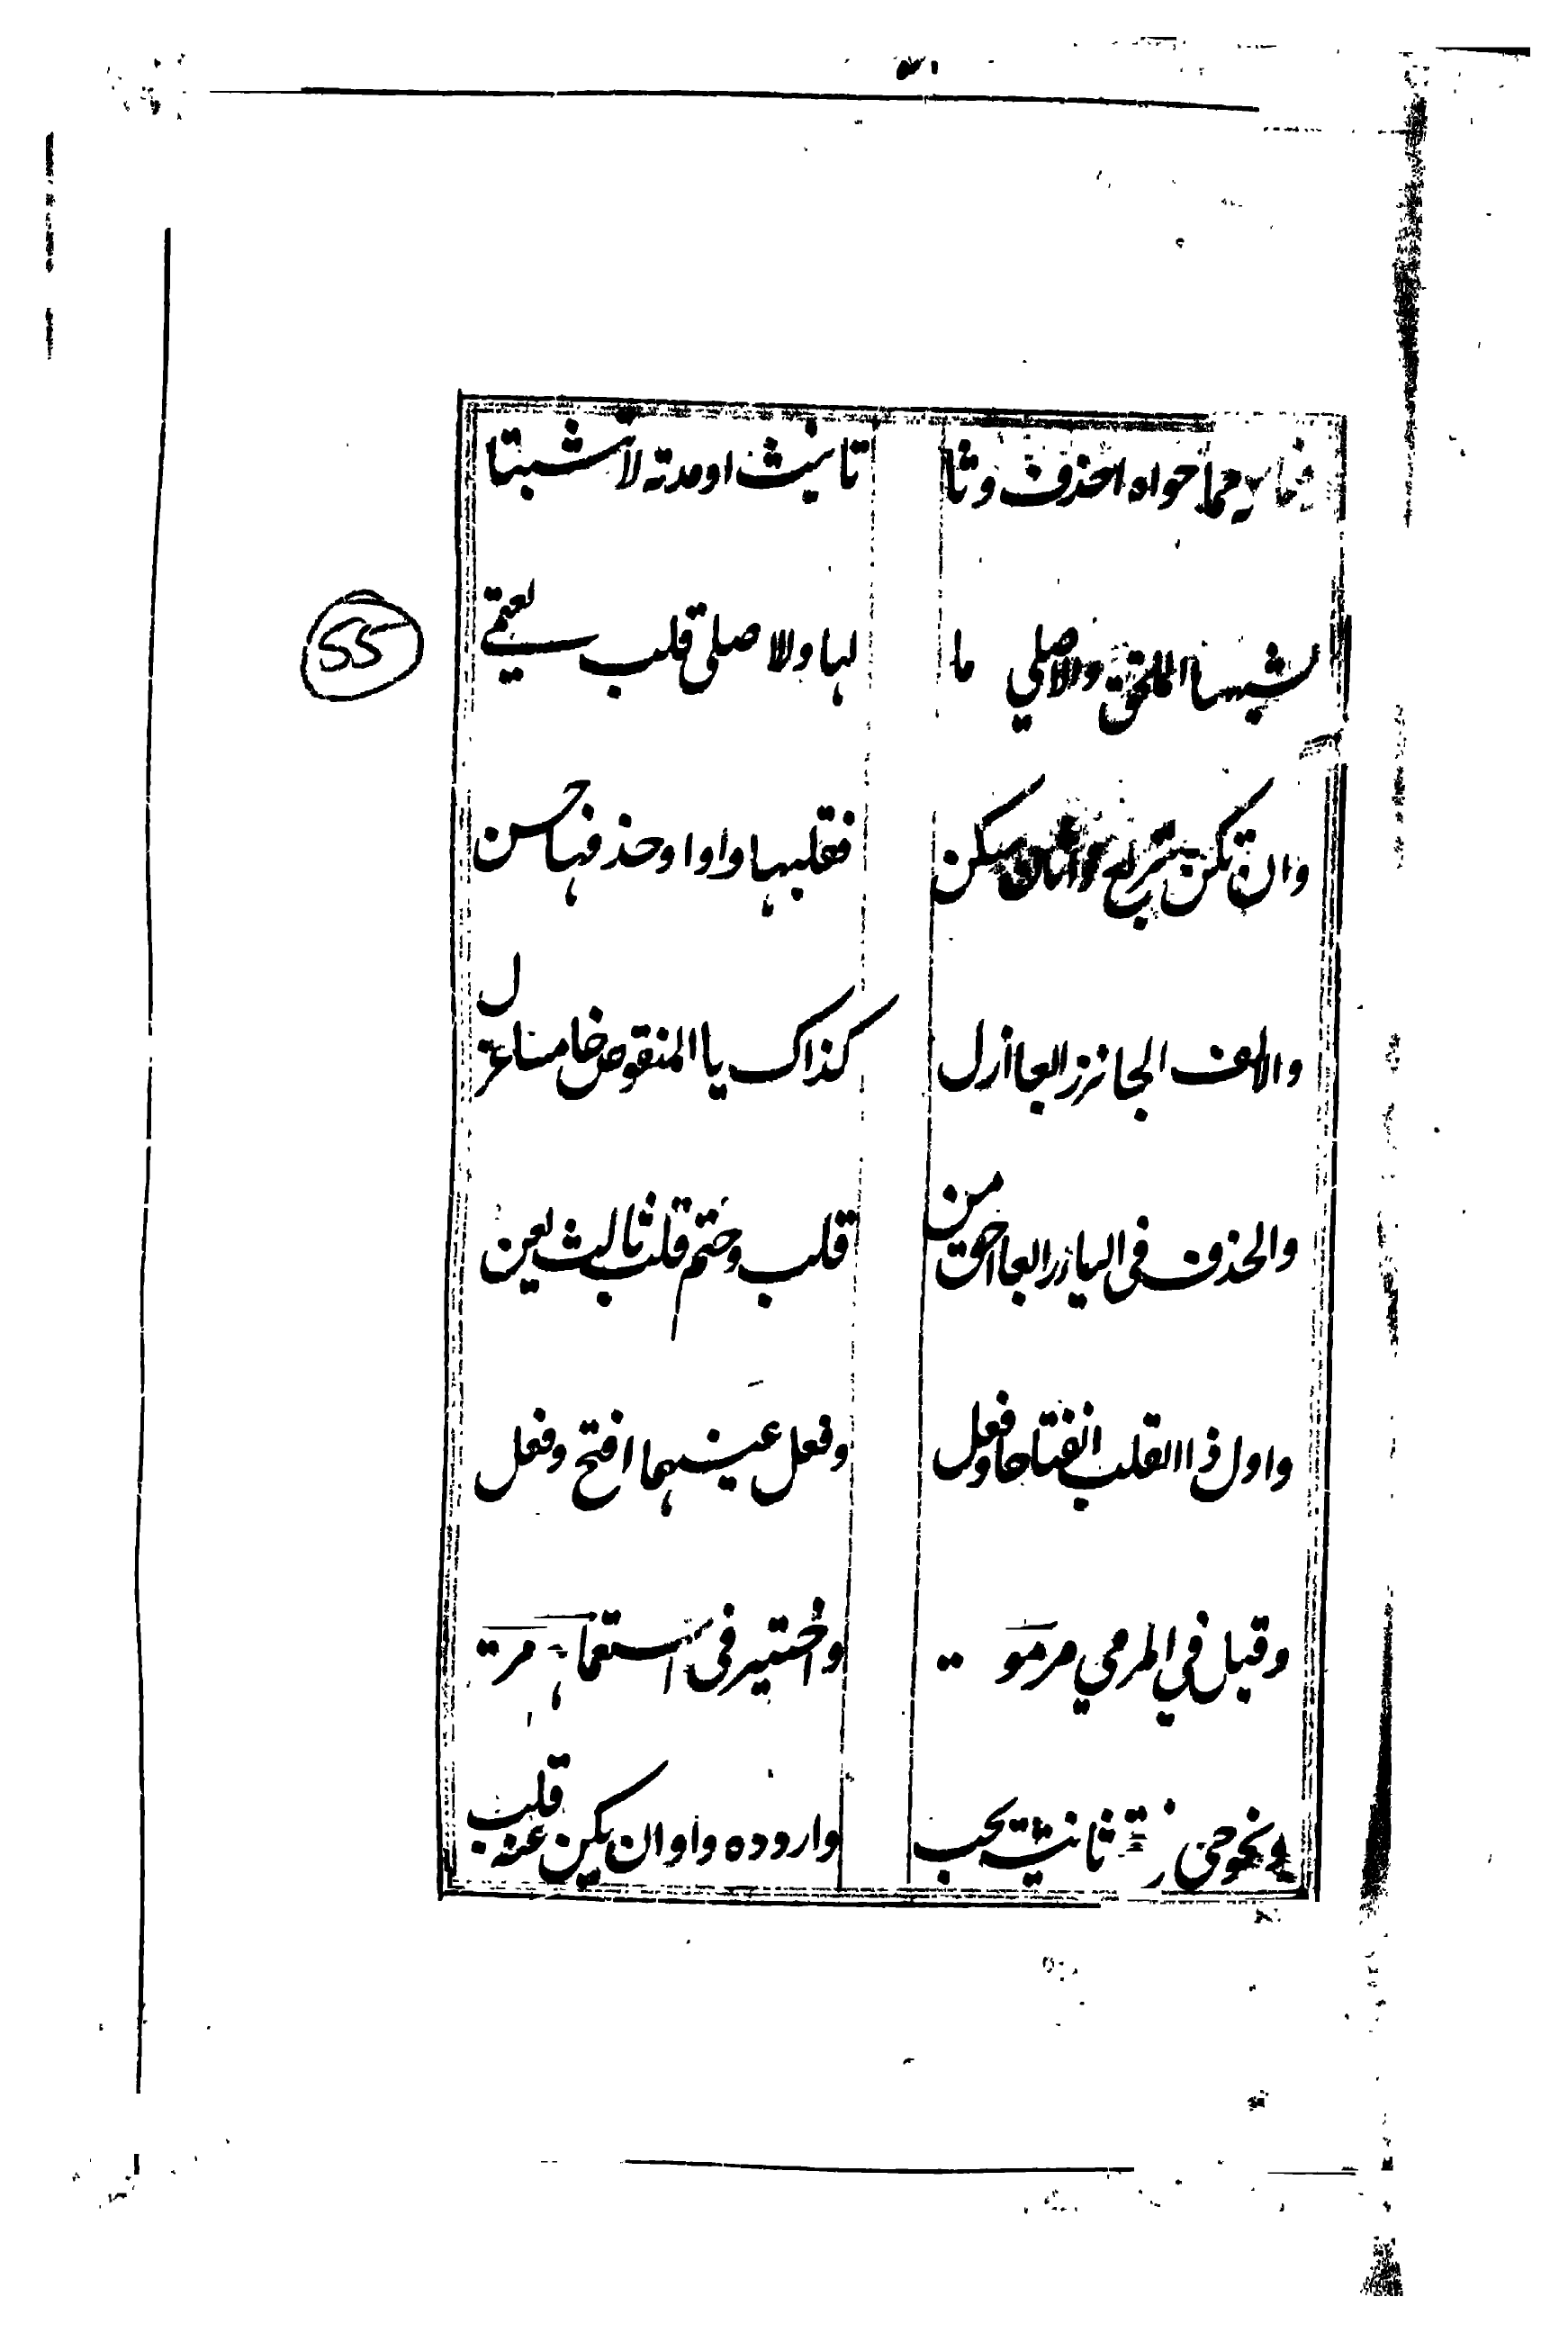 ومثله مما حواه احذف وتا تانيث او مدته لا تثبتا
لشبهها الملحق والاصلي ما لها وللاصلي قلب يعتمي
وان تكن تربع ذا ثان سكن فقلبها واوا وحذفها حسن
والالف الجائز اربعا ازل كذاك يا المنقوص خامسا عزل
والحذف في اليا رابعا احق من قلب وحتم قلب ثالث يعن
واول ذا القلب انفتاحا وفعل وفعل عينهما افتح وفعل
وقيل في المرمي مرموي واختير في استعمالهم مرمي
ونحو حي فتح ثانيه يجب واردده واوا ان يكن عنه قلب
55